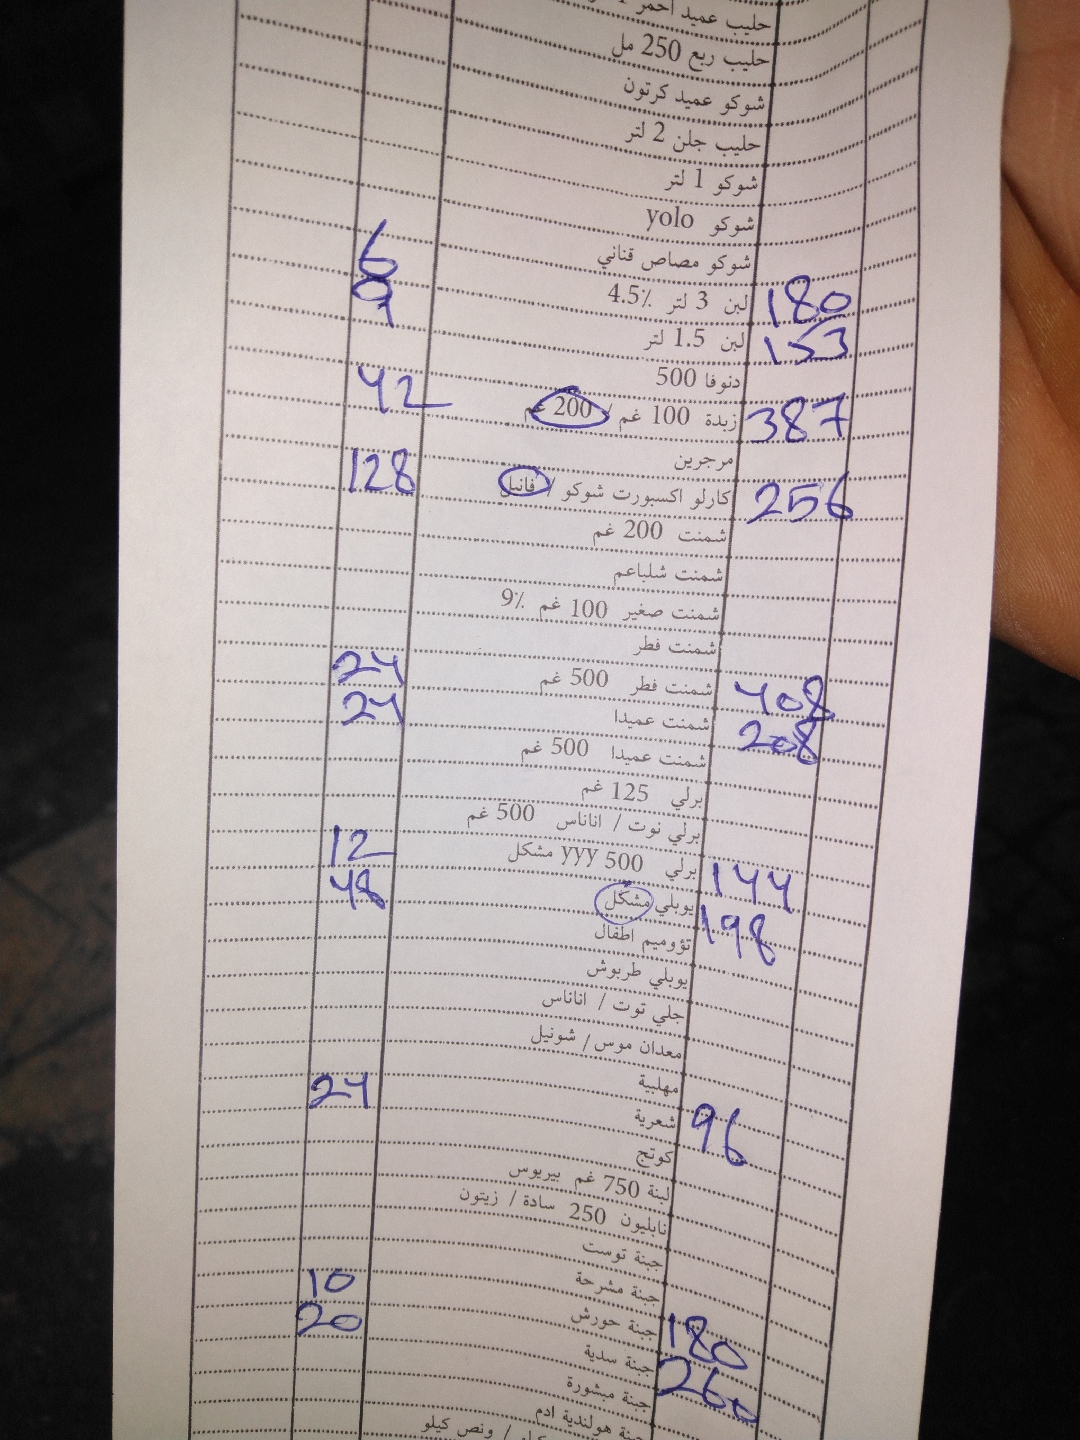 حليب عميد احمر
حليب ربع 250 مل
شوكو عميد كرتون
حليب جلن 2 لتر
شوكو 1 لتر
شوكو yolo
شوكو مصاص قناني
180 لبن 3 لتر 4.5٪ 6
153 لبن 1.5 لتر 9
دنوفا 500
387 زبدة 100 غم / 200 غم 42
مرجرين
256 كارلو اكسبورت شوكو / فانيل 128
شمنت 200 غم
شمنت شلباعم
شمنت صغير 100 غم 9٪
شمنت فطر
408 شمنت فطر 500 غم 24
208 شمنت عميدا 24
شمنت عميدا 500 غم
برلي 125 غم
برلي نوت / اناناس 500 غم
144 برلي 500 yyy مشكل 12
198 يوبلي مشكّل 48
تؤوميم اطفال
يوبلي طربوش
جلي توت / اناناس
معدان موس / شونيل
مهلبية
96 شعرية 24
كوتج
لبنة 750 غم بيريوس
نابليون 250 سادة / زيتون
جبنة توست
جبنة مشرحة
180 جبنة حورش 10
260 جبنة سدية 20
جبنة مبشورة
جبنة هولندية ادم
/ ونص كيلو